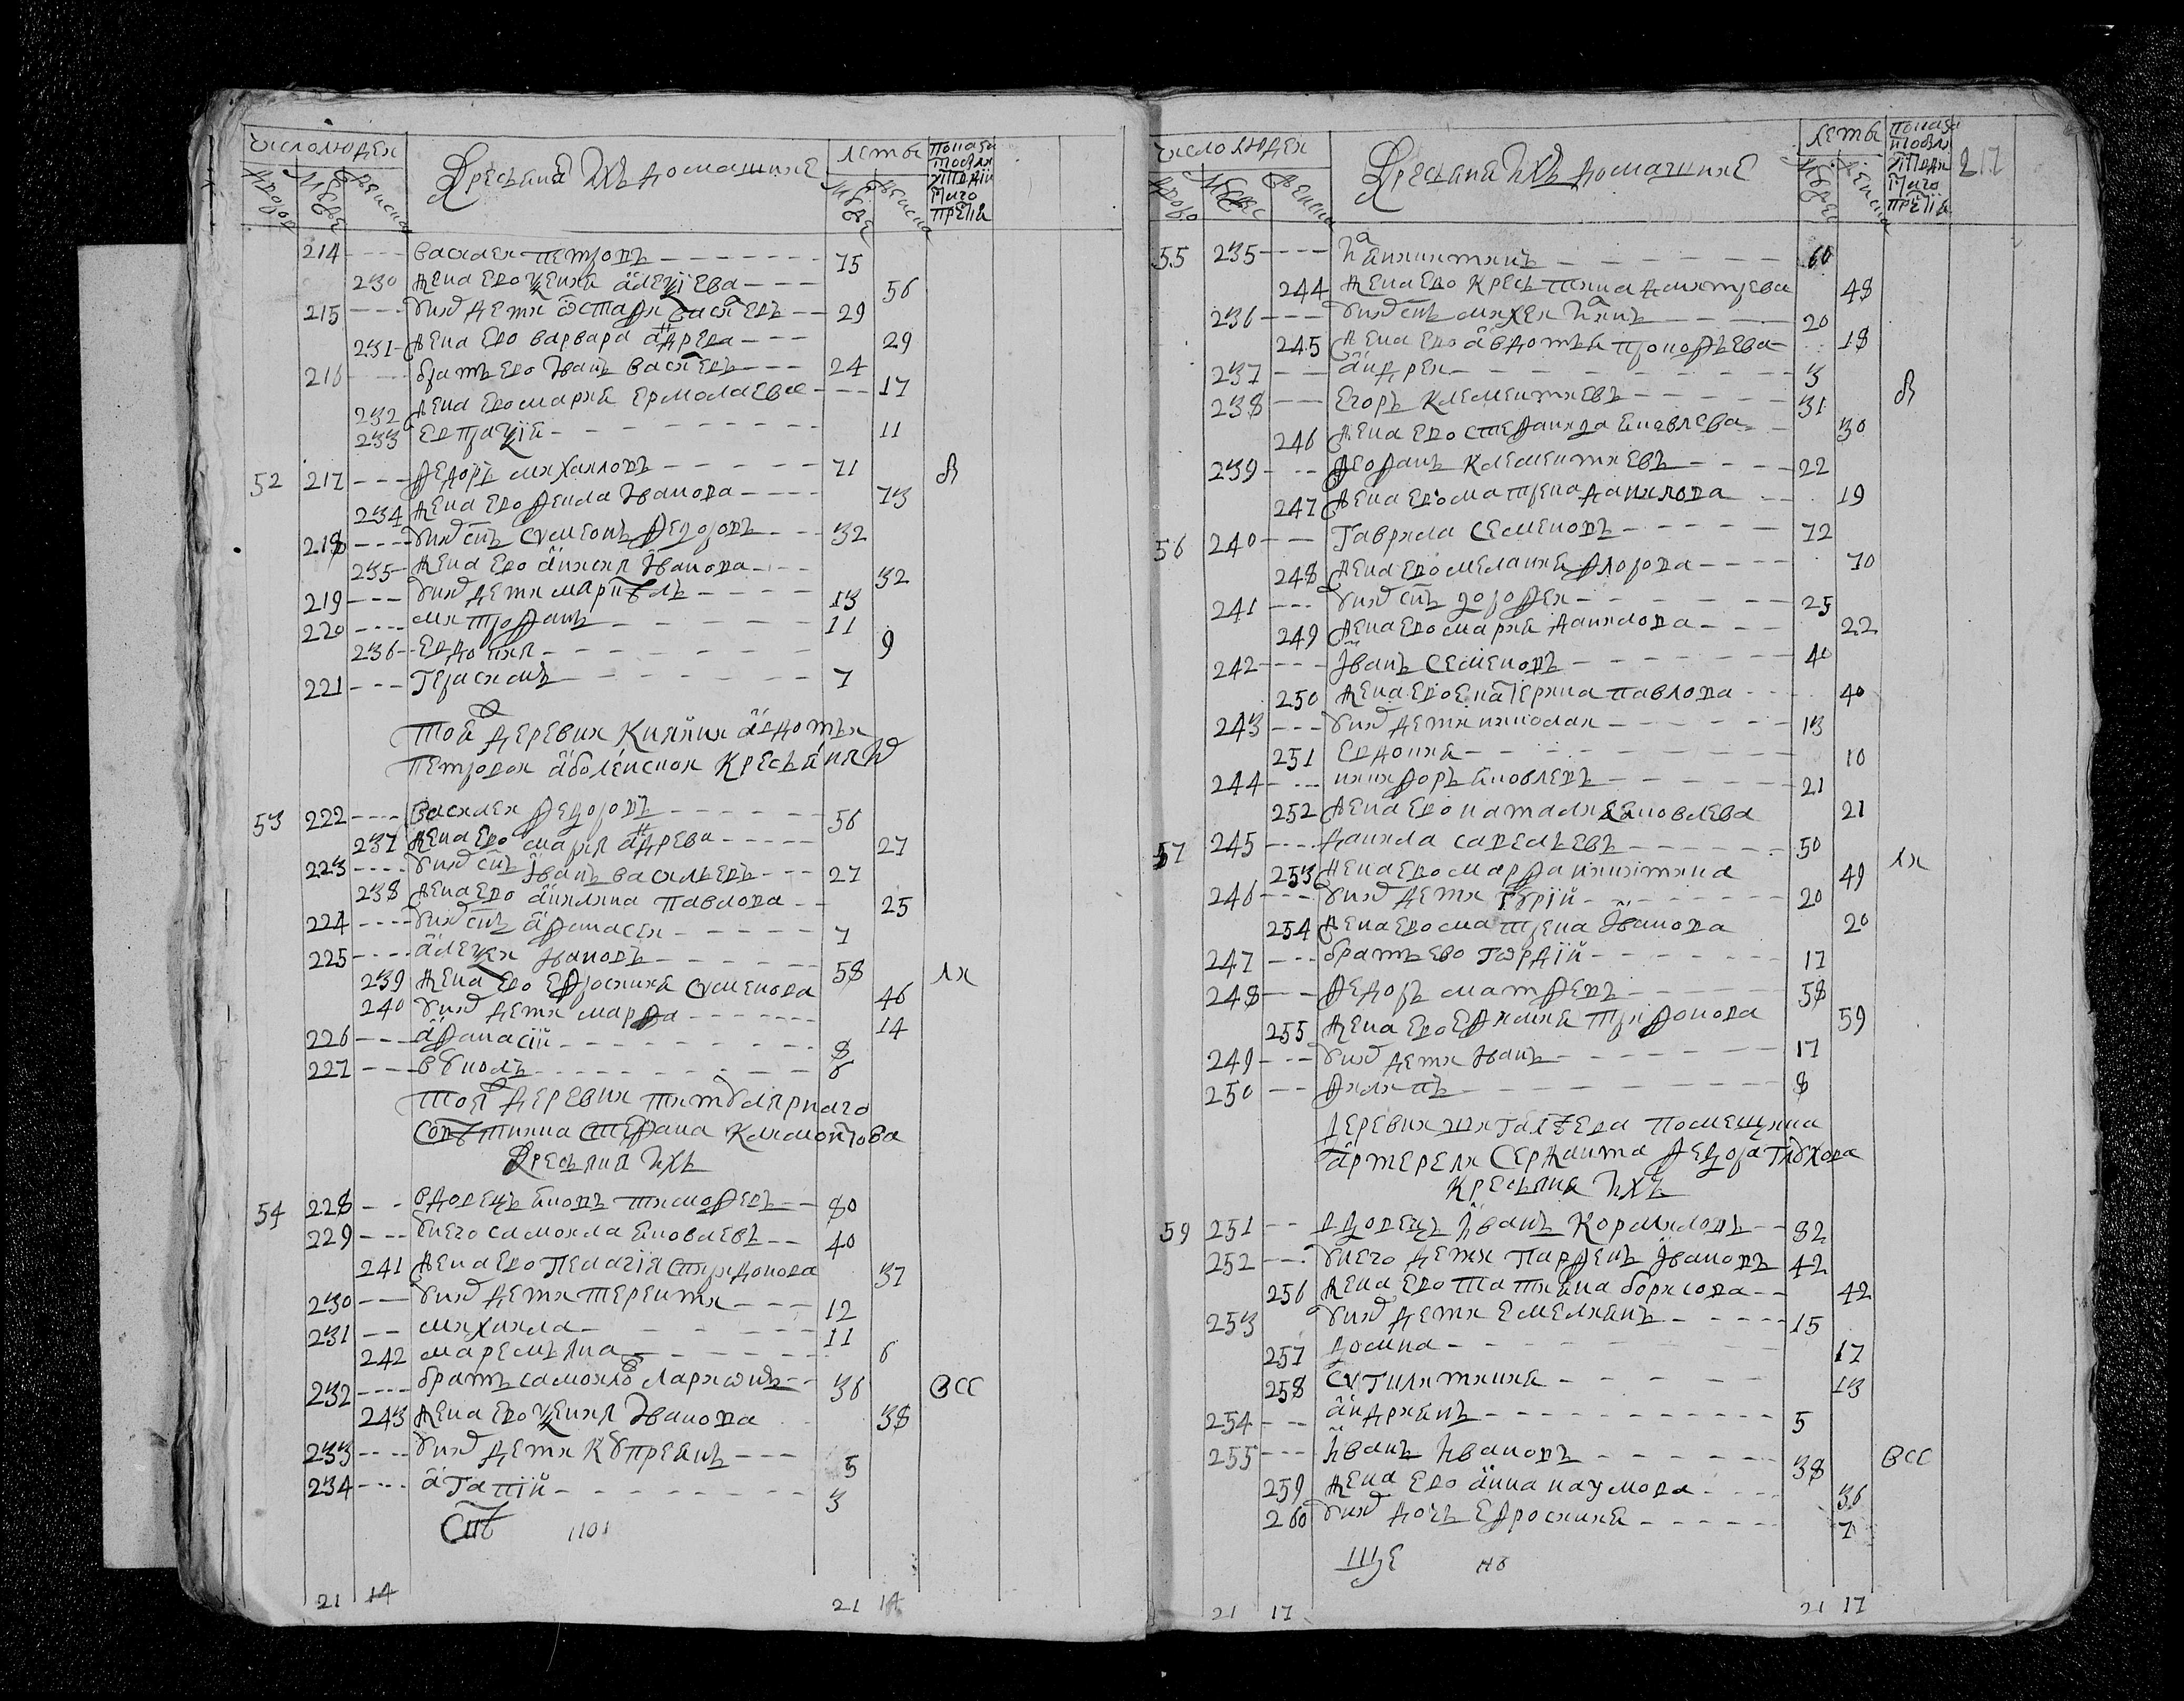 число людей
дворовъ
мужеска
женска
Крестьяне ихъ домашние
лета
мужеска
женска
214 ---- василеи петровъ 75
230 жена ево ѯения алеѯиева --- 56
215 --- у них дети астафи васильевъ -- 29
231 - жена ево варвара андрева --- 29
216 братъ ево иванъ васильевъ --- 24
232 жена ево мария ермолаева --- 17
233 евпраѯия - - - 11
52 217 --- федоръ михаиловъ - - - 71
234 жена ево фекла иванова ---- 73
218 ---- у них снъ сѵмеонъ федоровъ 32
235 - жена ево анисия иванова --- 32
219 --- у них дети - - - 13
220 ---- митрофанъ - - - 11
236 - евдокия - - - 9
221 --- герасимъ - - - 7
тои деревни княини авдотьи
петровои аболенскои крестьяня
53 222 ---- василеи федоровъ - - - 56
237 жена ево мария андрева ----- 27
223 ---- у них снъ иванъ васильевъ --- 27
238 жена ево акилина павлова -- 25
224 ---- у них снъ афанасеи - - - 7
225 ---- алеѯеи ивановъ - - - 58
239 жена ево ефросиния сѵменова 46
240 у них дети марфа - - - 14
226 --- афанасий - - - 8
227 --- вуколъ - - -
тои деревни
стефана климонтова
Крестьяня ихъ
54 228 -- вдовецъ яковъ тимофевъ -- 80
229 --- у него самоила яковлевъ -- 40
241 жена ево пелагия спиридонова 37
230 --- у них дети терентя --- 12
231 -- михаила - - - 11
242 маремьяна - - - 6
232 ---- братъ самоило лариѡнъ -- 36 всс
243 жена ево ѯения иванова 38
233 ---- у них дети куприянъ --- 5
234 ---- агапий - - - 3
21 14
21 14
число людей
мужеска
женска
Крестьяня ихъ домашние
лета
женска
217
55 235 ---- 60
244 жена ево крестина дмитрева 48
236 --- у них снъ михеи 20
245 жена ево авдотья прокофьева - 18
237 -- андреи - - - 3
238 -- егоръ клементиевъ - - - 31
246 жена ево стефанида яковлева - 30
239 - -- феофанъ клементиевъ - - - 22
247 жена ево матрена данилова 19
56 240 -- гаврила семеновъ - - - 72
248 жена ево мелания флорова ---- 70
241 --- у них снъ дорофеи - - - 25
249 жена ево мария данилова --- 22
242 --- иванъ семеновъ - - - 40
250 жена ево екатерина павлова --- 40
243 --- у них дети николаи - - - 13
251 евдокия - - - 10
244 - -- никифоръ яковлевъ - - - 21
252 жена ево наталия яковлева 21
57 245 ---- данила савельевъ - - - 50 ли
253 жена ево марфа никитина 49
246 --- у них дети гурий - - - 20
254 жена ево матрена иванова 20
247 --- братъ ево гордий - - - 17
248 --- федоръ матфевъ - - - 58
255 жена ево ефимия трифонова 59
249 --- у них дети иванъ - - - 17
250 -- филипъ - - - 8
деревни помещика
артилерии сержанта федора глухова
крестьяня ихъ
59 251 -- вдовецъ иванъ кормиловъ -- 82
252 --- у него дети парфенъ ивановъ 42
256 жена ево татияна борисова -- 42
253 у них дети емелиянъ - - - 15
257 домна - - - 17
258 - - - 13
254 --- андриянъ - - - 5
255 --- иванъ ивановъ - - - 38 всс
259 жена ево анна наумова --- 36
260 у них дочь ефросиния - - - 7
21 17
21 17